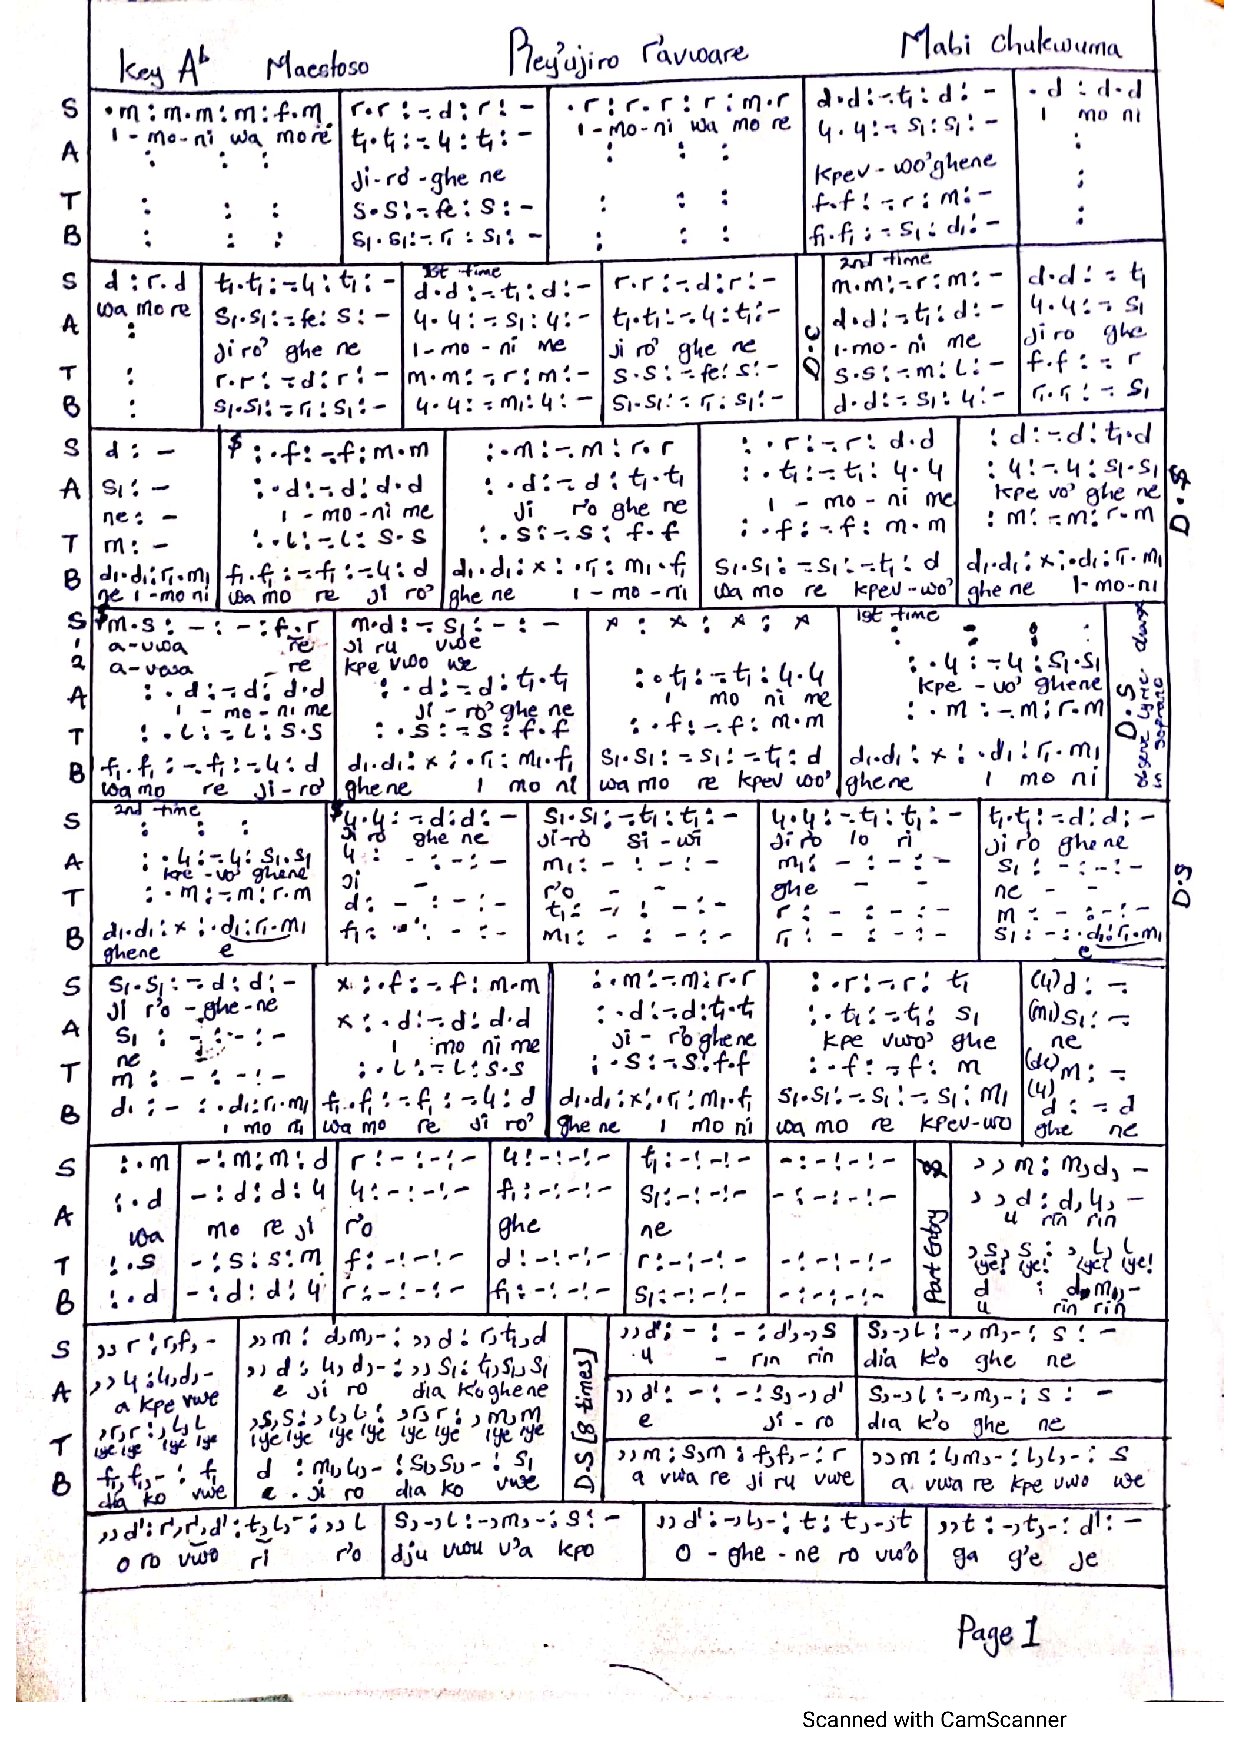 Key Ab Maestoso Reyojiro r'avware Mabi Chukwuma
S •m : m.m : m : f.m r.r : - d : r : - • r : r.r : r : m.r d.d : - t₁ : d : - • d : d.d
1 - mo-ni wa more 1-mo-ni wa mo re 1 mo ni
A t₁.t₁ : - l₁ : t₁ : - l₁.l₁ : - s₁ : s₁ : -
Ji-ro' -ghe ne kpev - wo'ghene
T s.s : - fe : s : - f.f : - r : m : -
B s₁.s₁ : - r₁ : s₁ : - f₁.f₁ : - s₁ : d₁ : -
1st time 2nd time
S d : r.d t₁.t₁ : - l₁ : t₁ : - d.d : - t₁ : d : - r.r : - d : r : - m.m : - r : m : - d.d : - t₁
wa more
A s₁.s₁ : - fe : s : - l₁.l₁ : - s₁ : l₁ : - t₁.t₁ : - l₁ : t₁ : - D.C d.d : - t₁ : d : - l₁.l₁ : - s₁
Jiro' ghe ne 1-mo-ni me Ji ro' ghe ne 1-mo-ni me Ji ro ghe
T r.r : - d : r : - m.m : - r : m : - s.s : - fe : s : - s.s : - m : l : - f.f : - r
B s₁.s₁ : - r₁ : s₁ : - l₁.l₁ : - m₁ : l₁ : - s₁.s₁ : - r₁ : s₁ : - d.d : - s₁ : l₁ : - r₁.r₁ : - s₁
S d : - $ : .f : - f : m.m : .m : - m : r.r : .r : - r : d.d : d : - d : t₁.d
A s₁ : - : .d : - d : d.d : .d : - d : t₁.t₁ : .t₁ : - t₁ : l₁.l₁ : l₁ : - l₁ : s₁.s₁ D.$
ne : - 1 - mo-ni me Ji r'o ghe ne 1 - mo - ni me kpe vo' ghe ne
T m : - : .l : - l : s.s : .s : - s : f.f : .f : - f : m.m : m : - m : r.m
B d₁.d₁ : r₁.m₁ f₁.f₁ : - f₁ : - l₁ : d d₁.d₁ : x : .r₁ : m₁.f₁ s₁.s₁ : - s₁ : - t₁ : d d₁.d₁ : x : .d₁ : r₁.m₁
ne 1-mo ni wa mo re Ji ro' ghe ne 1 - mo - ni wa mo re kpev-wo' ghe ne 1-mo-ni
S $ m.s : - : - : f.r m.d : - s₁ : - : - x : x : x : x 1st time
1 a-vwa re Ji ru vwe
2 a-vwa re kpe vwo we : .l₁ : - l₁ : s₁.s₁
A : .d : - d : d.d : .d : - d : t₁.t₁ : .t₁ : - t₁ : l₁.l₁ kpe - vo' ghene D.S
1 - mo - ni me Ji - ro' ghe ne 1 mo ni me : .m : - m : r.m
T : .l : - l : s.s : .s : - s : f.f : .f : - f : m.m
B f₁.f₁ : - f₁ : - l₁ : d d₁.d₁ : x : .r₁ : m₁.f₁ s₁.s₁ : - s₁ : - t₁ : d d₁.d₁ : x : .d₁ : r₁.m₁
wa mo re Ji-ro' ghe ne 1 mo ni wa mo re kpev wo' ghene 1 mo ni
2nd time
S : : : $ l₁.l₁ : - d : d : - s₁.s₁ : - t₁ : t₁ : - l₁.l₁ : - t₁ : t₁ : - t₁.t₁ : - d : d : -
Ji ro ghe ne Ji-ro Si - wi Ji ro lo ri Ji ro ghe ne
A : .l₁ : - l₁ : s₁.s₁ l₁ : - : - : - m₁ : - : - : - m₁ : - : - : - s₁ : - : - : -
kpe - vo' ghene Ji - r'o ghe - - ne - - D.S
T : .m : - m : r.m d : - : - : - t₁ : - : - : - r : - : - : - m : - : - : -
B d₁.d₁ : x : .d₁ : r₁.m₁ f₁ : - : - : - m₁ : - : - : - r₁ : - : - : - s₁ : - : .d₁ : r₁.m₁
ghene e e
S s₁.s₁ : - d : d : - x : .f : - f : m.m : .m : - m : r.r : .r : - r : t₁ (l₁) d : -
Ji r'o - ghe-ne
A s₁ : - : - : - x : .d : - d : d.d : .d : - d : t₁.t₁ : .t₁ : - t₁ : s₁ (m₁) s₁ : -
ne 1 mo ni me Ji - ro ghene kpe vwo' ghe ne
T m : - : - : - : .l : - l : s.s : .s : - s : f.f : .f : - f : m m : -
B d₁ : - : .d₁ : r₁.m₁ f₁.f₁ : - f₁ : - l₁ : d d₁.d₁ : x : .r₁ : m₁.f₁ s₁.s₁ : - s₁ : - s₁ : m₁ (l₁) d : - d
1 mo ni wa mo re Ji ro' ghe ne 1 mo ni wa mo re kpev-wo ghe ne
S : .m - : m : m : d r : - : - : - l₁ : - : - : - t₁ : - : - : - - : - : - : - ,, m : m,d, -
A : .d - : d : d : l₁ l₁ : - : - : - f₁ : - : - : - s₁ : - : - : - - : - : - : - Part Entry $ ,, d : d,l₁, -
wa mo re Ji r'o ghe ne u rin rin
T : .s - : s : s : m f : - : - : - d : - : - : - r : - : - : - - : - : - : - ,s,s : ,l,l
Iye! Iye! Iye! Iye!
B : .d - : d : d : l₁ r₁ : - : - : - f₁ : - : - : - s₁ : - : - : - - : - : - : - d : d,m₁,-
u rin rin
S ,, r : r,f, - ,, m : d,m,- : ,, d : r,t₁,d ,, d' : - : - : d',-,s s,-,l : -,m,- : s : -
u - rin rin dia k'o ghe ne
A ,, l₁ : l₁,d,- ,, d : l₁,d,- : ,, s₁ : t₁,s₁,s₁ D.S [8 times] ,, d' : - : - : s,-,d' s,-,l : -,m,- : s : -
a kpe vwe e Ji ro dia k'o ghene e Ji - ro dia k'o ghe ne
T ,r,r : ,l,l ,s,s : ,l,l : ,r,r : ,m,m ,, m : s,m : f,f,- : r ,, m : l,m,- : l,l,- : s
Iye Iye Iye Iye Iye Iye Iye Iye Iye Iye Iye Iye a vwa re Ji ru vwe a vwa re kpe vwo we
B f₁,f₁,- : f₁ d : m₁,l₁,- : s₁,s₁,- : s₁
dia ko vwe e . Ji ro dia ko vwe
,, d' : r',r',d' : t,l,- : ,, l s,-,l : -,m,- : s : - ,, d' : -,l,- : t : t,-,t ,, t : -,t,- : d' : -
O ro vwo ri r'o dju vwu v'a kpo O - ghe - ne ro vwo' ga g'e Je
Page 1
Scanned with CamScanner